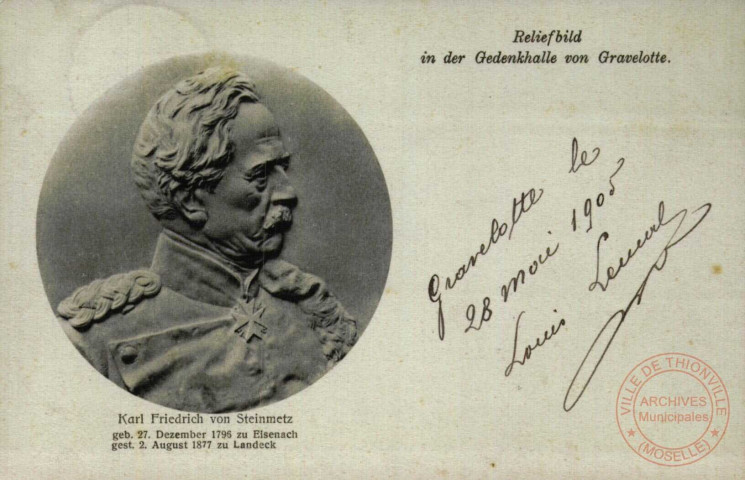 Reliefbild
in der Gedenkhalle von Gravelotte.
Gravelotte le
28 mai 1905
Louis
Karl Friedrich von Steinmetz
geb. 27. Dezember 1796 zu Eisenach
gest. 2. August 1877 zu Landeck
VILLE DE THIONVILLE
ARCHIVES
Municipales
(MOSELLE)